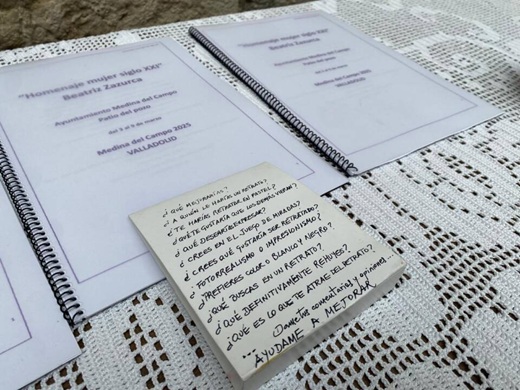 "Homenaje mujer siglo XXI"
Beatriz Zazurca
Ayuntamiento Medina del Campo
Patio del pozo
del 3 al 9 de marzo
Medina del Campo 2025
VALLADOLID
"Homenaje mujer siglo XXI"
Beatriz Zazurca
Ayuntamiento Medina del Campo
Patio del pozo
Medina del Campo 2025
VALLADOLID
¿QUÉ MEJORARÍAS?
¿A QUIÉN LE HARÍAS UN RETRATO?
¿TE HARÍAS RETRATAR EN PASTEL?
¿QUÉ TE GUSTARÍA QUE LOS DEMÁS VIERAN?
¿QUÉ DESEARÍAS EXPRESAR?
¿CREES EN EL JUEGO DE MIRADAS?
¿CREES QUE GUSTARÍA SER RETRATADO?
¿FOTORREALISMO O IMPRESIONISMO?
¿PREFIERES COLOR O BLANCO Y NEGRO?
¿QUÉ BUSCAS EN UN RETRATO?
¿QUÉ DEFINITIVAMENTE REHUYES?
¿QUÉ ES LO QUE TE ATRAE DEL RETRATO?
... comentarios y opiniones...
AYUDAME A MEJORAR